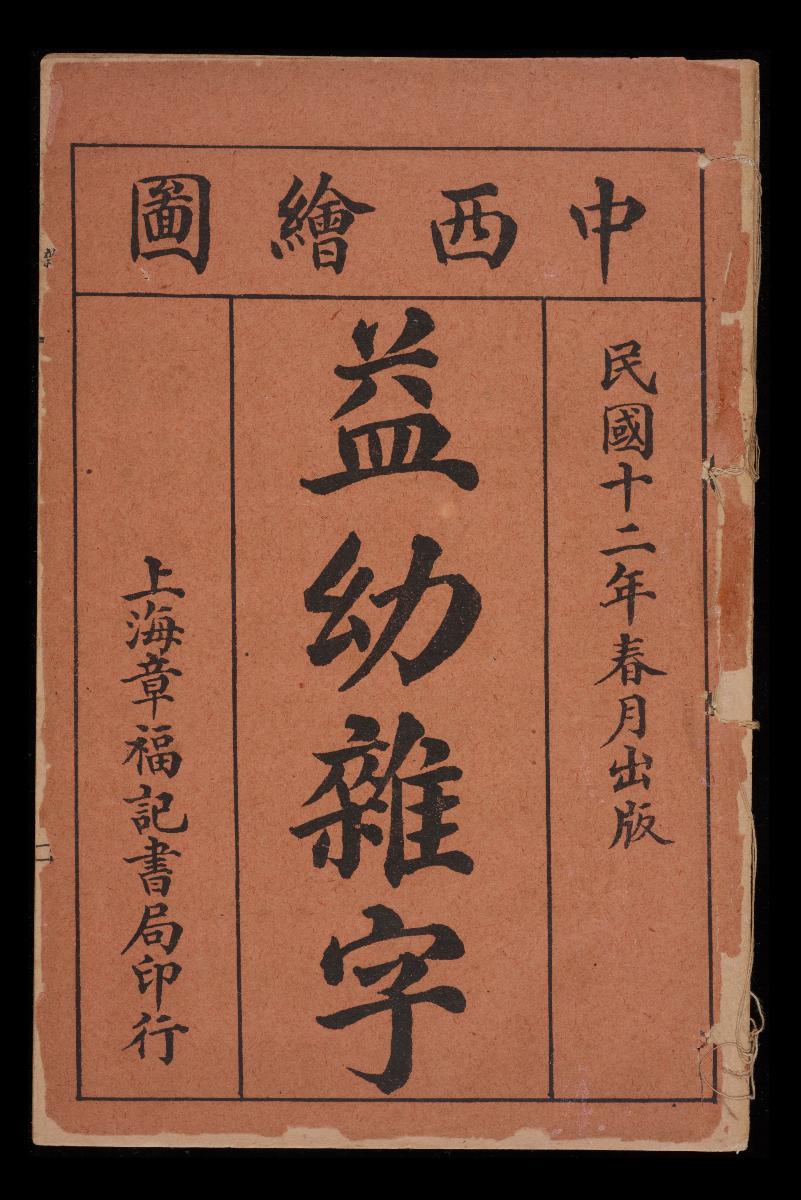 中西繪圖
民國十二年春月出版
益幼雜字
上海章福記書局印行